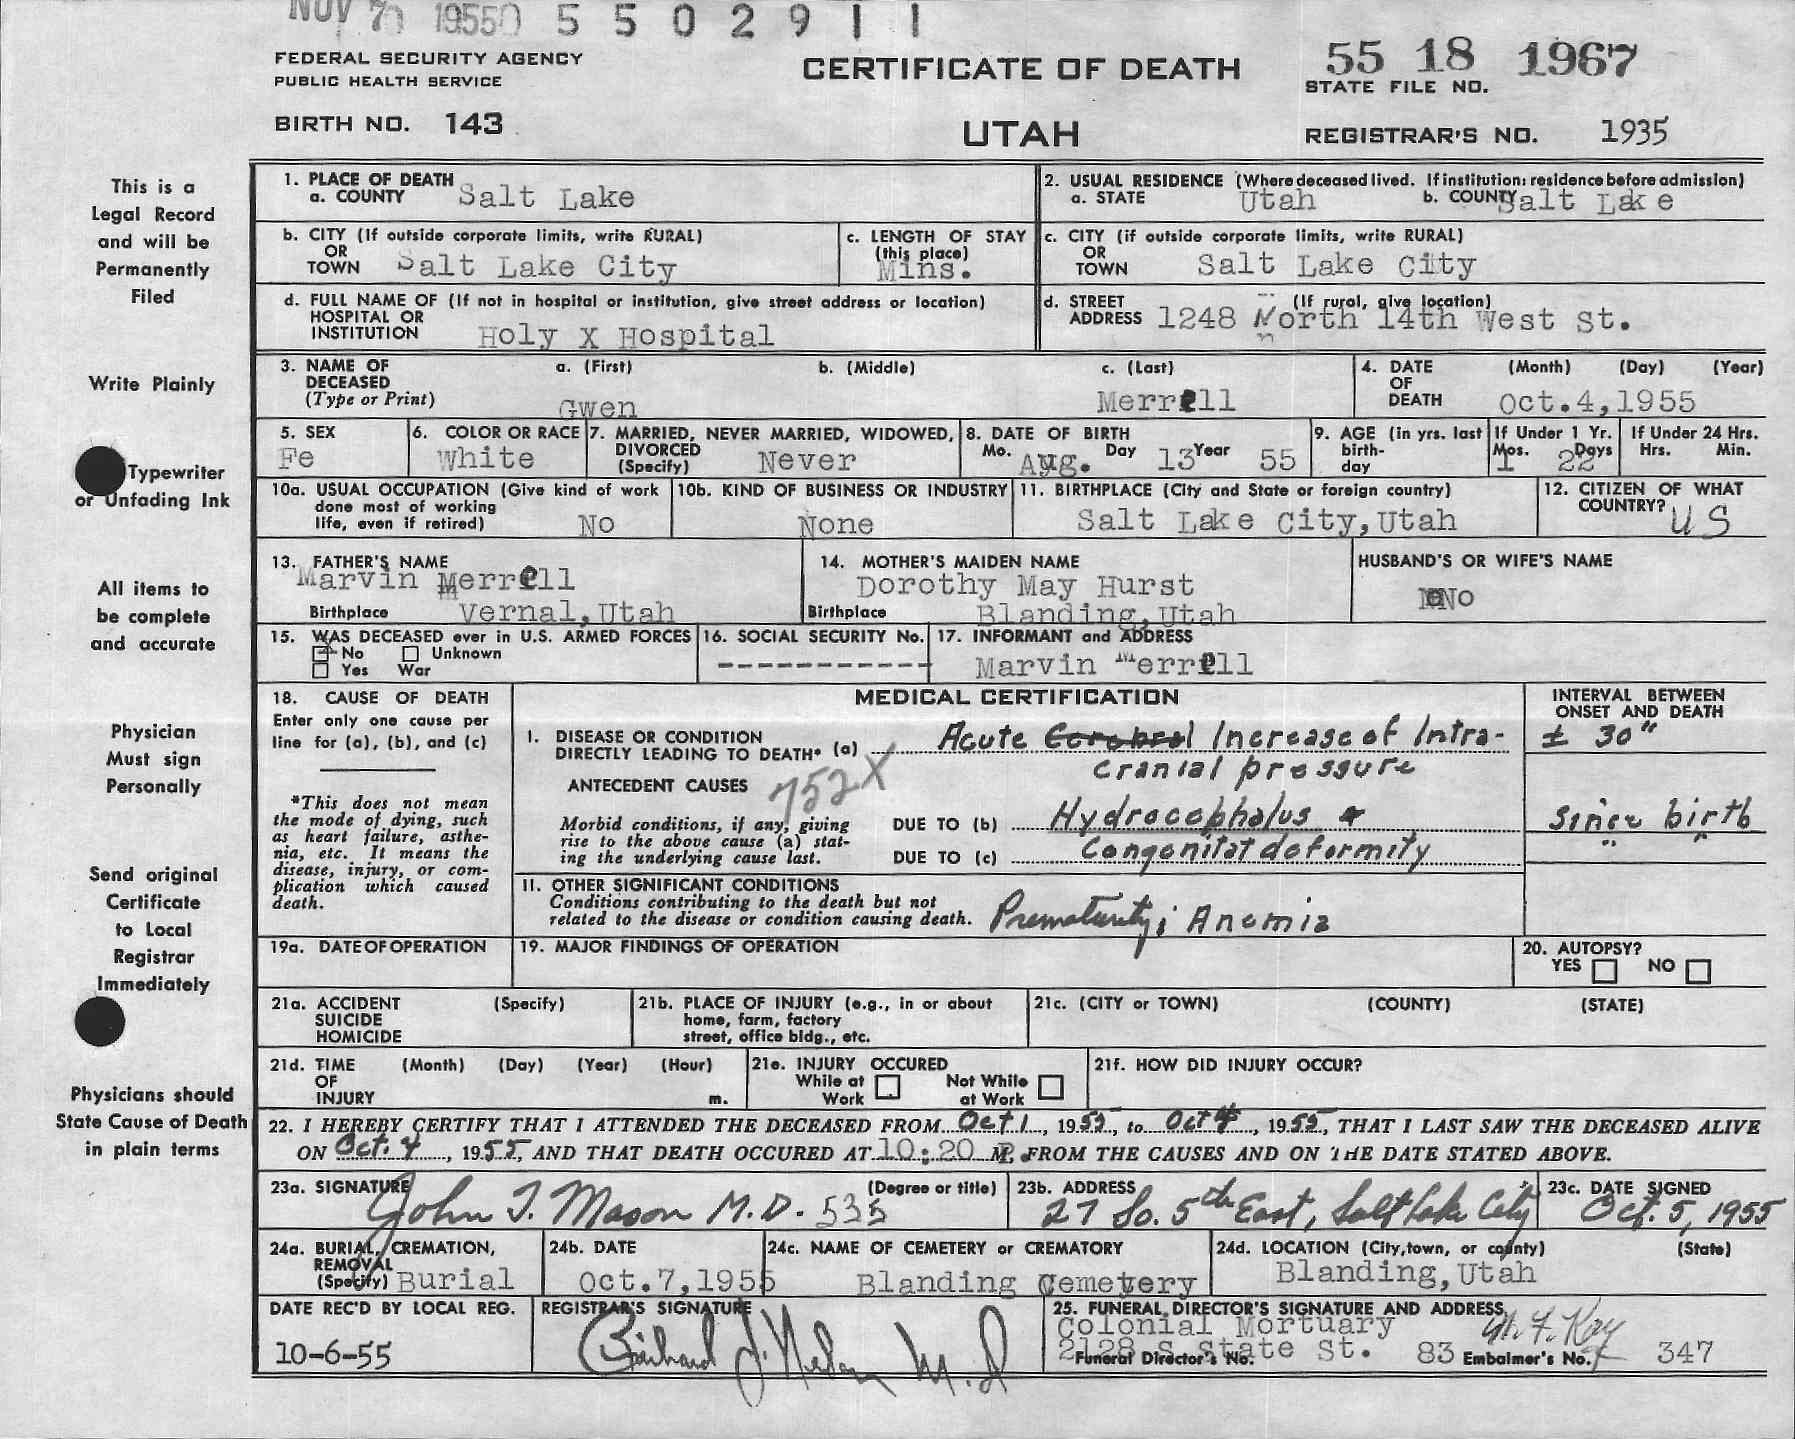 NOV 7 1955 0 5 5 0 2 9 1 1
FEDERAL SECURITY AGENCY
PUBLIC HEALTH SERVICE
BIRTH NO. 143
CERTIFICATE OF DEATH
UTAH
55 18 1967
STATE FILE NO.
REGISTRAR'S NO. 1935
This is a
Legal Record
and will be
Permanently
Filed
Write Plainly
Typewriter
or Unfading Ink
All items to
be complete
and accurate
Physician
Must sign
Personally
Send original
Certificate
to Local
Registrar
Immediately
Physicians should
State Cause of Death
in plain terms
1. PLACE OF DEATH
a. COUNTY Salt Lake
2. USUAL RESIDENCE (Where deceased lived. If institution: residence before admission)
a. STATE Utah b. COUNTY Salt Lake
b. CITY (If outside corporate limits, write RURAL)
OR
TOWN Salt Lake City
c. LENGTH OF STAY
(this place)
Mins.
c. CITY (if outside corporate limits, write RURAL)
OR
TOWN Salt Lake City
d. FULL NAME OF (If not in hospital or institution, give street address or location)
HOSPITAL OR
INSTITUTION Holy X Hospital
d. STREET (If rural, give location)
ADDRESS 1248 North 14th West St.
3. NAME OF a. (First) b. (Middle) c. (Last)
DECEASED
(Type or Print) Gwen Merrell
4. DATE (Month) (Day) (Year)
OF
DEATH Oct.4,1955
5. SEX
Fe
6. COLOR OR RACE
White
7. MARRIED, NEVER MARRIED, WIDOWED,
DIVORCED
(Specify) Never
8. DATE OF BIRTH
Mo. Aug. Day 13 Year 55
9. AGE (in yrs. last
birth-
day
If Under 1 Yr.
Mos. 1 22 Days
If Under 24 Hrs.
Hrs. Min.
10a. USUAL OCCUPATION (Give kind of work
done most of working
life, even if retired) No
10b. KIND OF BUSINESS OR INDUSTRY
None
11. BIRTHPLACE (City and State or foreign country)
Salt Lake City,Utah
12. CITIZEN OF WHAT
COUNTRY? US
13. FATHER'S NAME
Marvin Merrell
Birthplace Vernal,Utah
14. MOTHER'S MAIDEN NAME
Dorothy May Hurst
Birthplace Blanding,Utah
HUSBAND'S OR WIFE'S NAME
No
15. WAS DECEASED ever in U.S. ARMED FORCES
No Unknown
Yes War
16. SOCIAL SECURITY No.
-------------
17. INFORMANT and ADDRESS
Marvin Merrell
18. CAUSE OF DEATH
Enter only one cause per
line for (a), (b), and (c)
*This does not mean
the mode of dying, such
as heart failure, asthe-
nia, etc. It means the
disease, injury, or com-
plication which caused
death.
MEDICAL CERTIFICATION
INTERVAL BETWEEN
ONSET AND DEATH
I. DISEASE OR CONDITION
DIRECTLY LEADING TO DEATH* (a) Acute Cerebral Increase of Intra-
cranial pressure
± 30"
ANTECEDENT CAUSES
752X
Morbid conditions, if any, giving
rise to the above cause (a) stat-
ing the underlying cause last.
DUE TO (b) Hydrocephalus &
since birth
DUE TO (c) Congenital deformity
" "
11. OTHER SIGNIFICANT CONDITIONS
Conditions contributing to the death but not
related to the disease or condition causing death. Prematurity; Anemia
19a. DATE OF OPERATION
19. MAJOR FINDINGS OF OPERATION
20. AUTOPSY?
YES NO
21a. ACCIDENT (Specify)
SUICIDE
HOMICIDE
21b. PLACE OF INJURY (e.g., in or about
home, farm, factory
street, office bldg., etc.
21c. (CITY or TOWN) (COUNTY) (STATE)
21d. TIME (Month) (Day) (Year) (Hour)
OF
INJURY m.
21e. INJURY OCCURED
While at Work Not While at Work
21f. HOW DID INJURY OCCUR?
22. I HEREBY CERTIFY THAT I ATTENDED THE DECEASED FROM Oct 1, 1955, to Oct 4, 1955, THAT I LAST SAW THE DECEASED ALIVE
ON Oct. 4, 1955, AND THAT DEATH OCCURED AT 10:20 P M. FROM THE CAUSES AND ON THE DATE STATED ABOVE.
23a. SIGNATURE (Degree or title)
John T. Mason M.D. 535
23b. ADDRESS
27 So. 5th East, Salt Lake City
23c. DATE SIGNED
Oct. 5, 1955
24a. BURIAL, CREMATION,
REMOVAL
(Specify) Burial
24b. DATE
Oct.7,1955
24c. NAME OF CEMETERY or CREMATORY
Blanding Cemetery
24d. LOCATION (City, town, or county) (State)
Blanding,Utah
DATE REC'D BY LOCAL REG.
10-6-55
REGISTRAR'S SIGNATURE
M.D
25. FUNERAL DIRECTOR'S SIGNATURE AND ADDRESS
Colonial Mortuary
2128 S State St.
Funeral Director's No. 83 Embalmer's No. 347